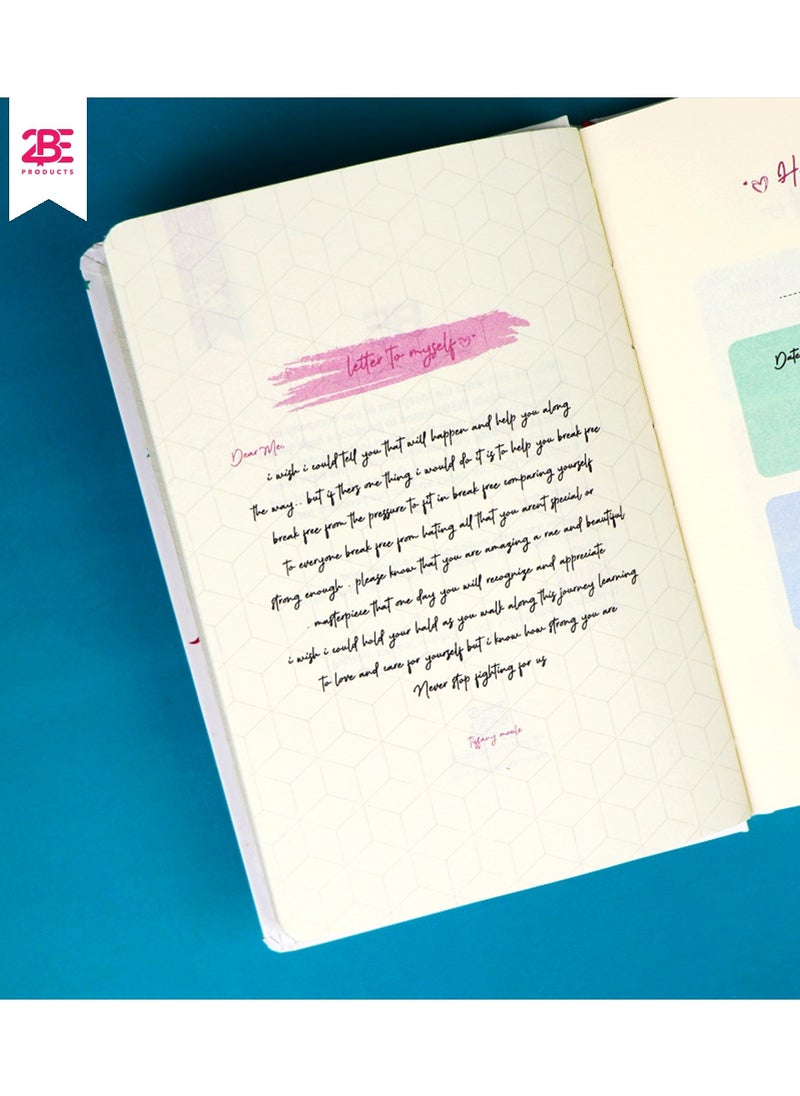 2BE
PRODUCTS
letter to myself
Dear Me,
i wish i could tell you that will happen and help you along
the way.. but if thers one thing i would do it is to help you break free
break free from the pressure to fit in break free comparing yourself
to everyone break free from hating all that you arent special or
strong enough . please know that you are amazing a rae and beautiful
. masterpiece that one day you will recognize and appreciate
i wish i could hold your hald as you walk along this journey learning
to love and care for yourself but i know how strong you are
Never stop fighting for us
tiffany moule
Date